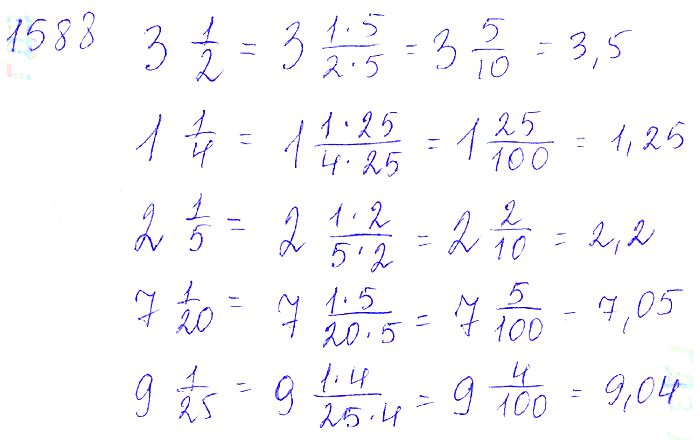 1588 3 1/2 = 3 1·5/2·5 = 3 5/10 = 3,5
1 1/4 = 1 1·25/4·25 = 1 25/100 = 1,25
2 1/5 = 2 1·2/5·2 = 2 2/10 = 2,2
7 1/20 = 7 1·5/20·5 = 7 5/100 - 7,05
9 1/25 = 9 1·4/25·4 = 9 4/100 = 9,04